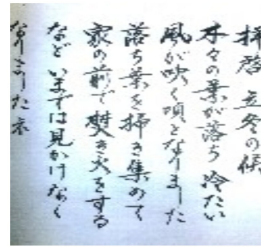 拝啓 立冬の候
木々の葉が落ち 冷たい
風が吹く頃となりました
落ち葉を掃き集めて
家の前で焚き火をする
など いまでは見かけなく
なりましたね